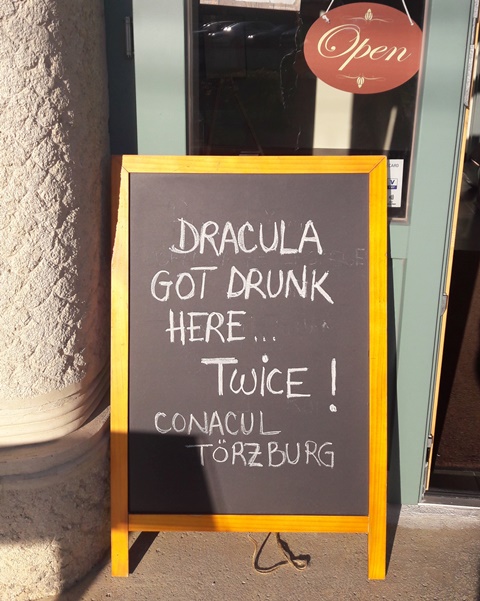 Open
DRACULA
GOT DRUNK
HERE...
TWiCE!
CONACUL
TÖRZBURG